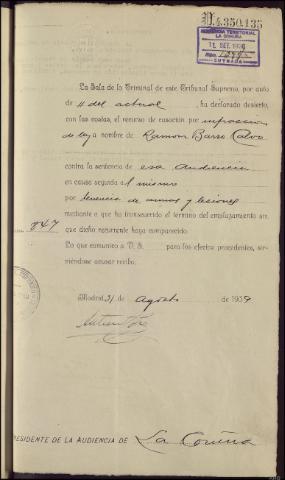 N.4.350,135
AUDIENCIA TERRITORIAL
LA CORUÑA
ENTRADA
La Sala de lo Criminal de este Tribunal Supremo, por auto
de 11 del actual, ha declarado desierto,
con las costas, el recurso de casación por infracción
de ley a nombre de Ramon Barse Calvo
contra la sentencia de esa Audiencia
en causa seguida al mismo
por tenencia de armas y lesiones
mediante a que ha transcurrido el término del emplazamiento sin
que dicho recurrente haya comparecido.
847
Lo que comunico a V. S. para los efectos procedentes, sir-
viéndose acusar recibo.
Madrid, 31 de agosto de 1939
RESIDENTE DE LA AUDIENCIA DE La Coruña